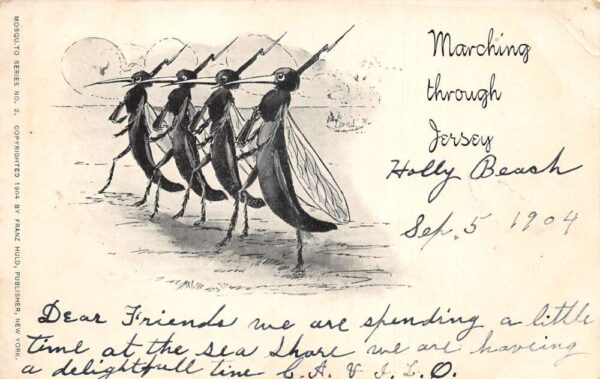 MOSQUITO SERIES NO. 2. COPYRIGHTED 1904 BY FRANZ HULD, PUBLISHER, NEW YORK.
Marching
through
Jersey
Holly Beach
Sep. 5 1904
Dear Friends we are spending a little
time at the sea Shore we are haveing
a delightfull time C. A. V. I. L. O.